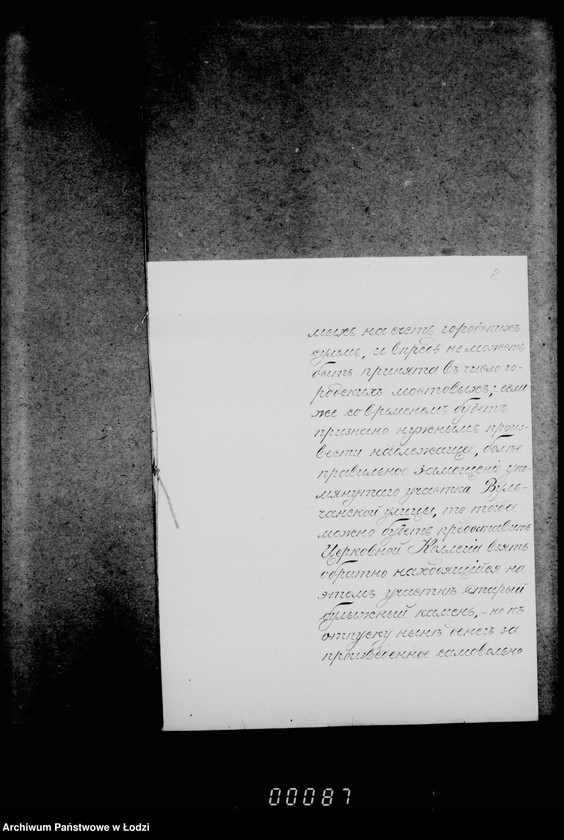 мыхъ на счетъ городскихъ
суммъ, и впредь не можетъ
быть принята въ число го-
родскихъ мостовыхъ; если
же со временемъ будетъ
признано нужнымъ произ-
вести надлежаще, болѣе
правильное замощеніе упо-
мянутаго участка Вуль-
чанской улицы, то тогда
можно будетъ предоставить
Церковной Коллегіи взять
обратно находящійся на
этомъ участкѣ старый
булыжный камень, - но къ
отпуску нынѣ денегъ за
произведенное самовольно
00087
Archiwum Państwowe w Łodzi